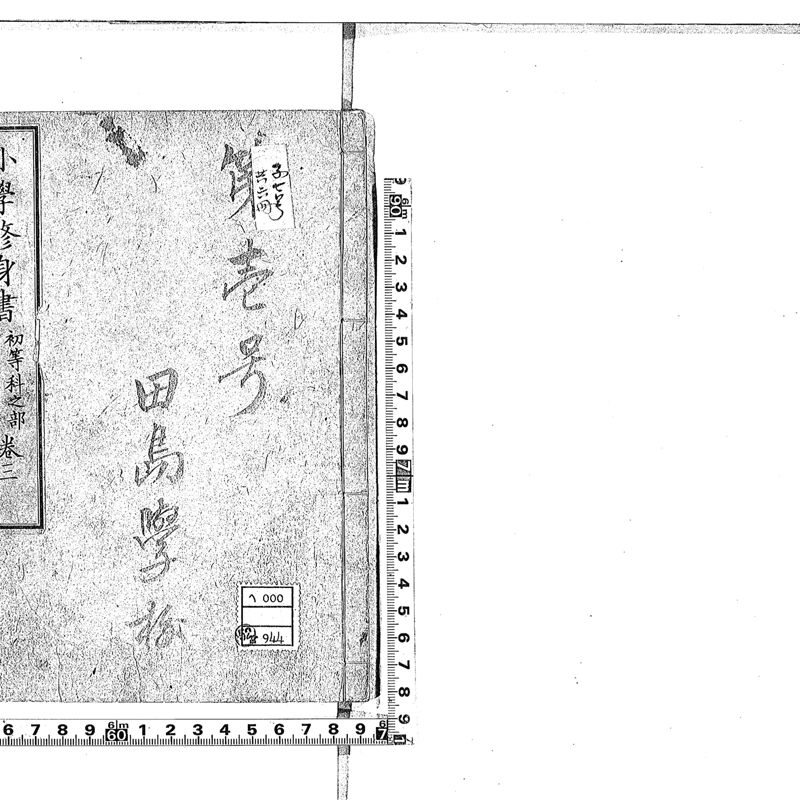 第壱号
子七号
共六冊
田島學校
小學修身書 初等科之部 卷三
1 000
944
9 6m 90 1 2 3 4 5 6 7 8 9 7m 1 2 3 4 5 6 7 8 9 1
6 7 8 9 6m 60 1 2 3 4 5 6 7 8 9 6 7